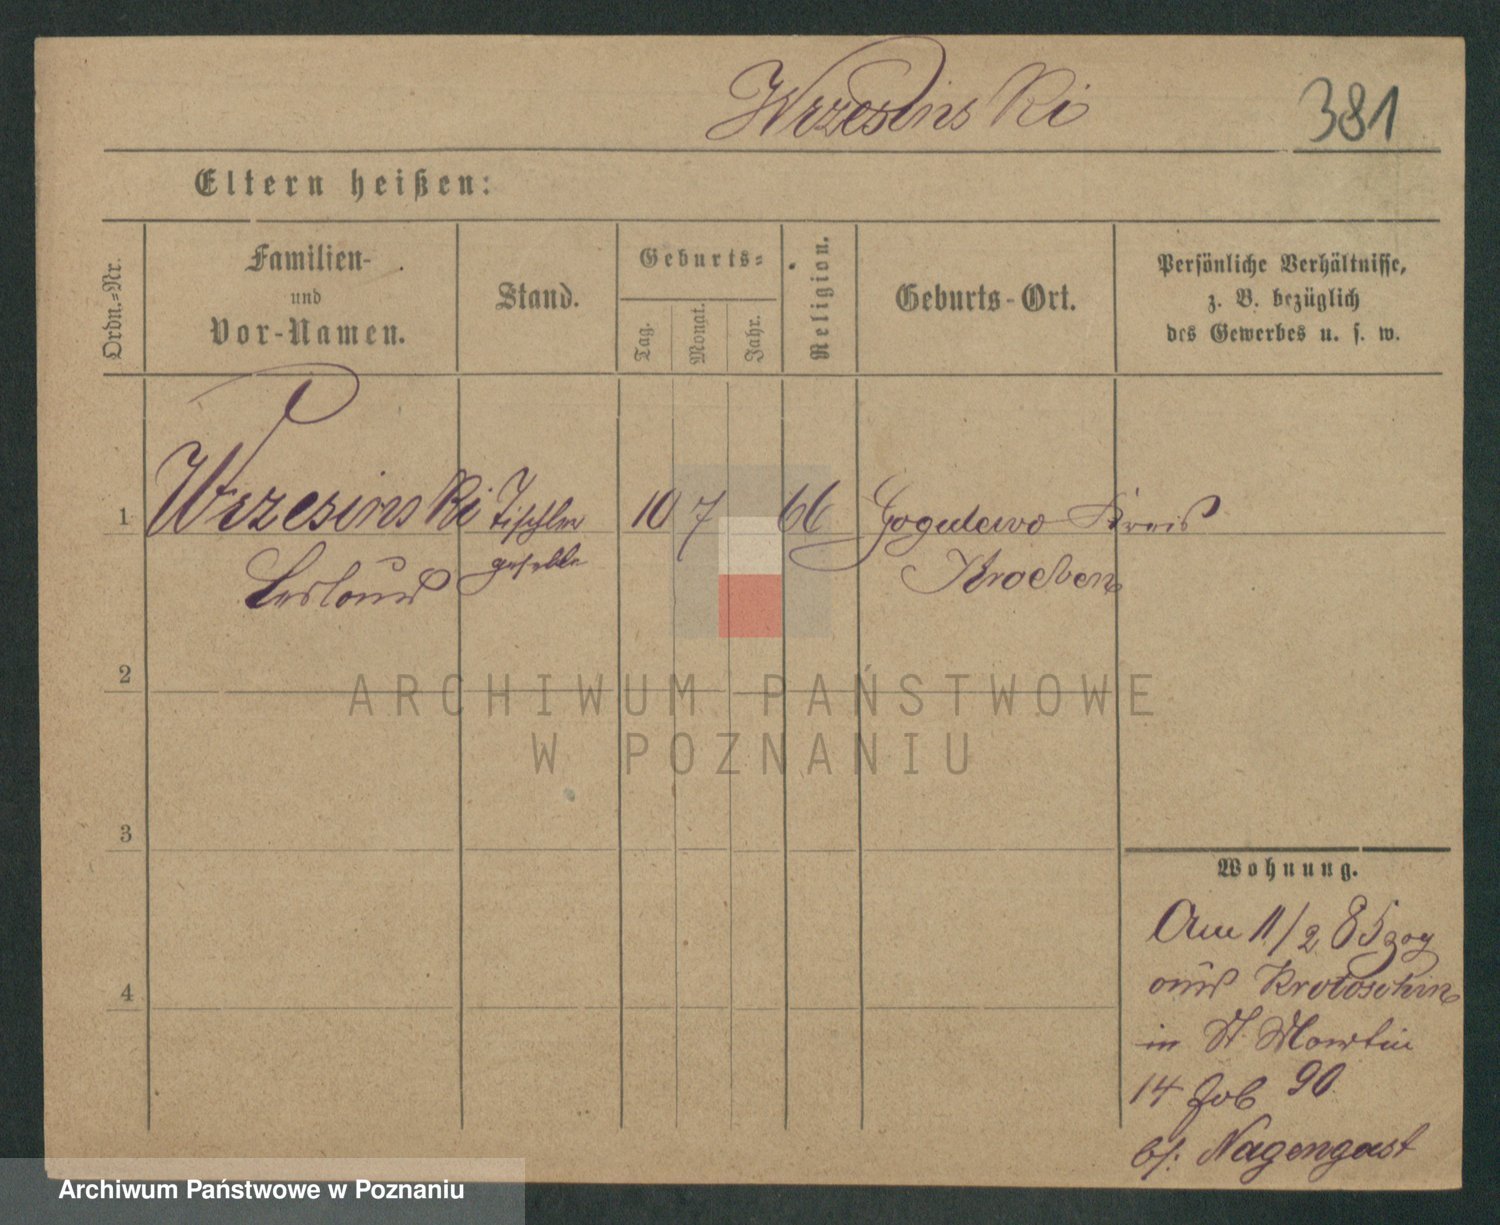 Wrzesinski
381
Eltern heißen:
Ordn.-Nr.
Familien-
und
Vor-Namen.
Stand.
Geburts-
Tag.
Monat.
Jahr.
Religion.
Geburts-Ort.
Persönliche Verhältnisse,
z. B. bezüglich
des Gewerbes u. s. w.
1
Wrzesinski
Tischler
geselle
10
7
66
Gogulewo Kreis
Kroeben
2
ARCHIWUM PAŃSTWOWE
W POZNANIU
3
Wohnung.
Am 11/2 85 zog
aus Krotoschin
in St. Martin
14 90
bei: Nagengast
4
Archiwum Państwowe w Poznaniu